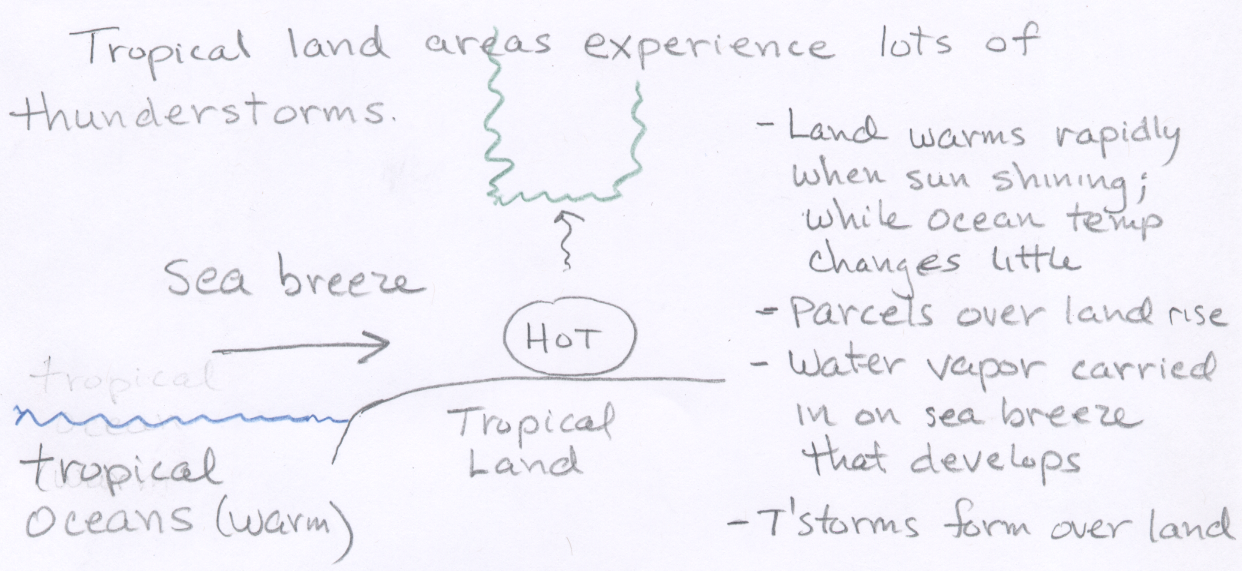 Tropical land areas experience lots of
thunderstorms.
- Land warms rapidly
when sun shining;
while ocean temp
changes little
- Parcels over land rise
- Water vapor carried
in on sea breeze
that develops
- T'storms form over land
Sea breeze
HOT
tropical
Tropical
Land
tropical
oceans (warm)